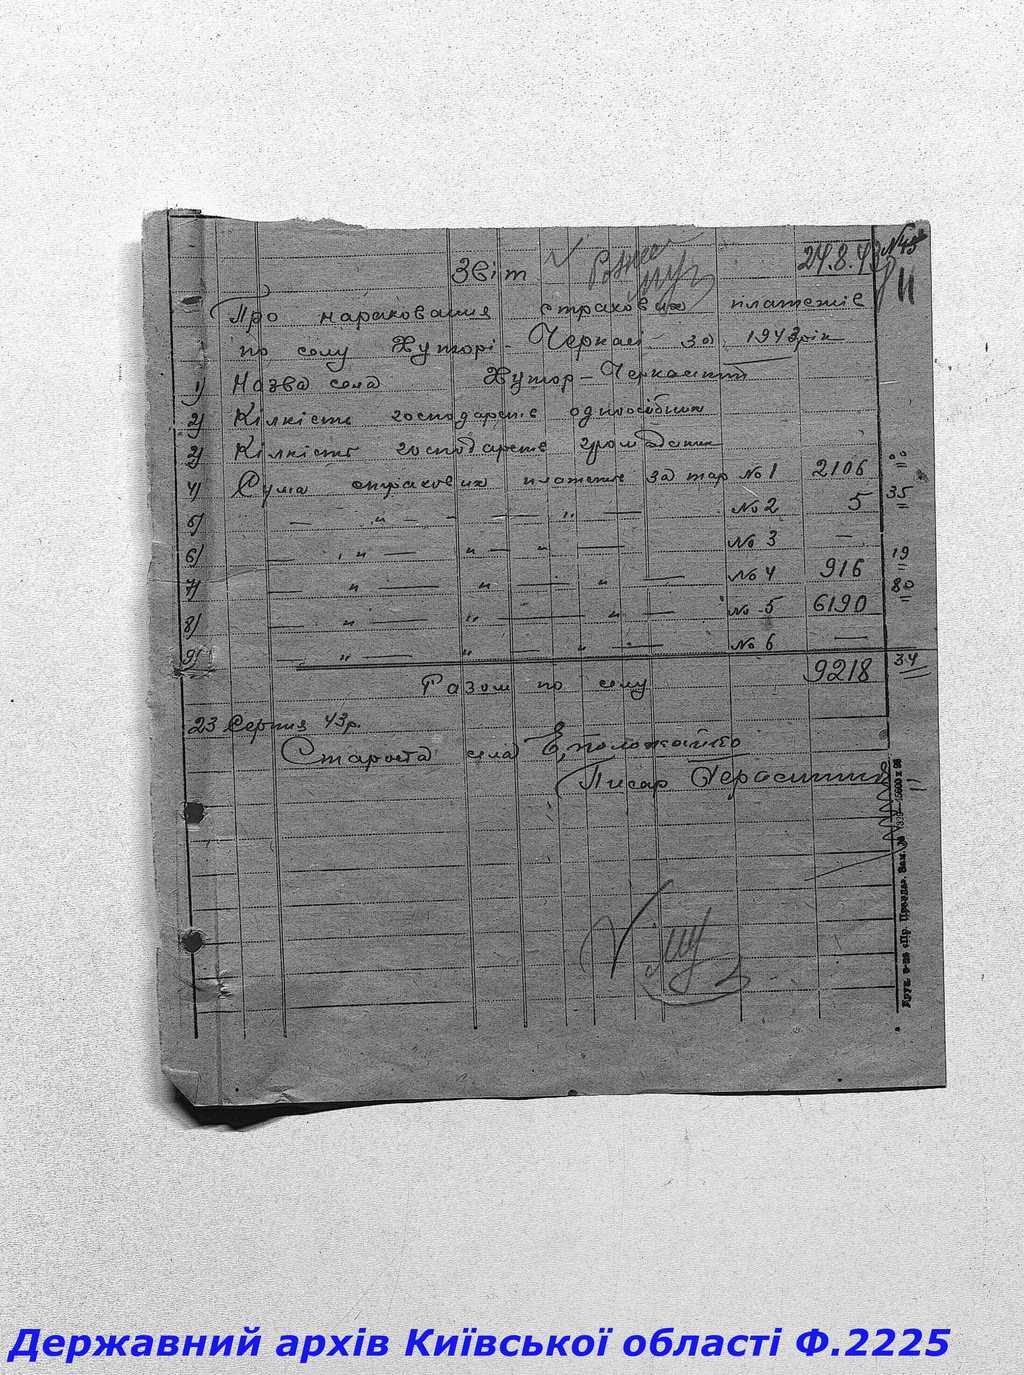 24.8.43 №43
11
Звіт
Про нараховання страхових платежів
по селу Хуторі-Черкасі за 1943 рік
1) Назва села Хутор-Черкаський
2) Кілкість господарств одноосібник
3) Кілкість господарств громадських
4) Сума страхових платежів за тар №1 2106 00
5) — " — — " — №2 5 35
6) — " — " — " — №3 —
7) — " — " — " — №4 916 19
8) — " — " — " — №5 6190 80
9) — " — " — " — №6 —
Разом по селу 9218 34
23 Серпня 43р.
Староста села
Писар
Держaвний архів Київської області Ф.2225